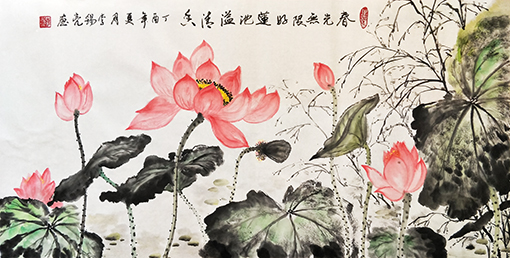 春光無限好蓮池溢清香
丁酉年夏月